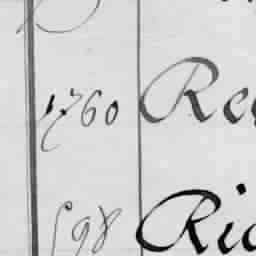 1760 Re
598 Ric